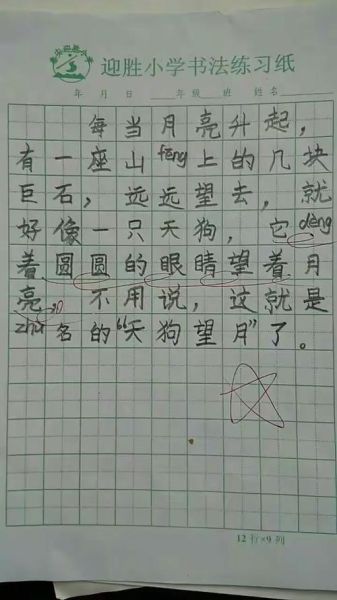 迎胜小学书法练习纸
年 月 日 ____年级 班 姓名____
每当月亮升起，
有一座山fēng上的几块
巨石，远远望去，就
好像一只天狗，它dèng
着圆圆的眼睛望着月
亮，不用说，这就是
zhù名的“天狗望月”了。
12行×9列